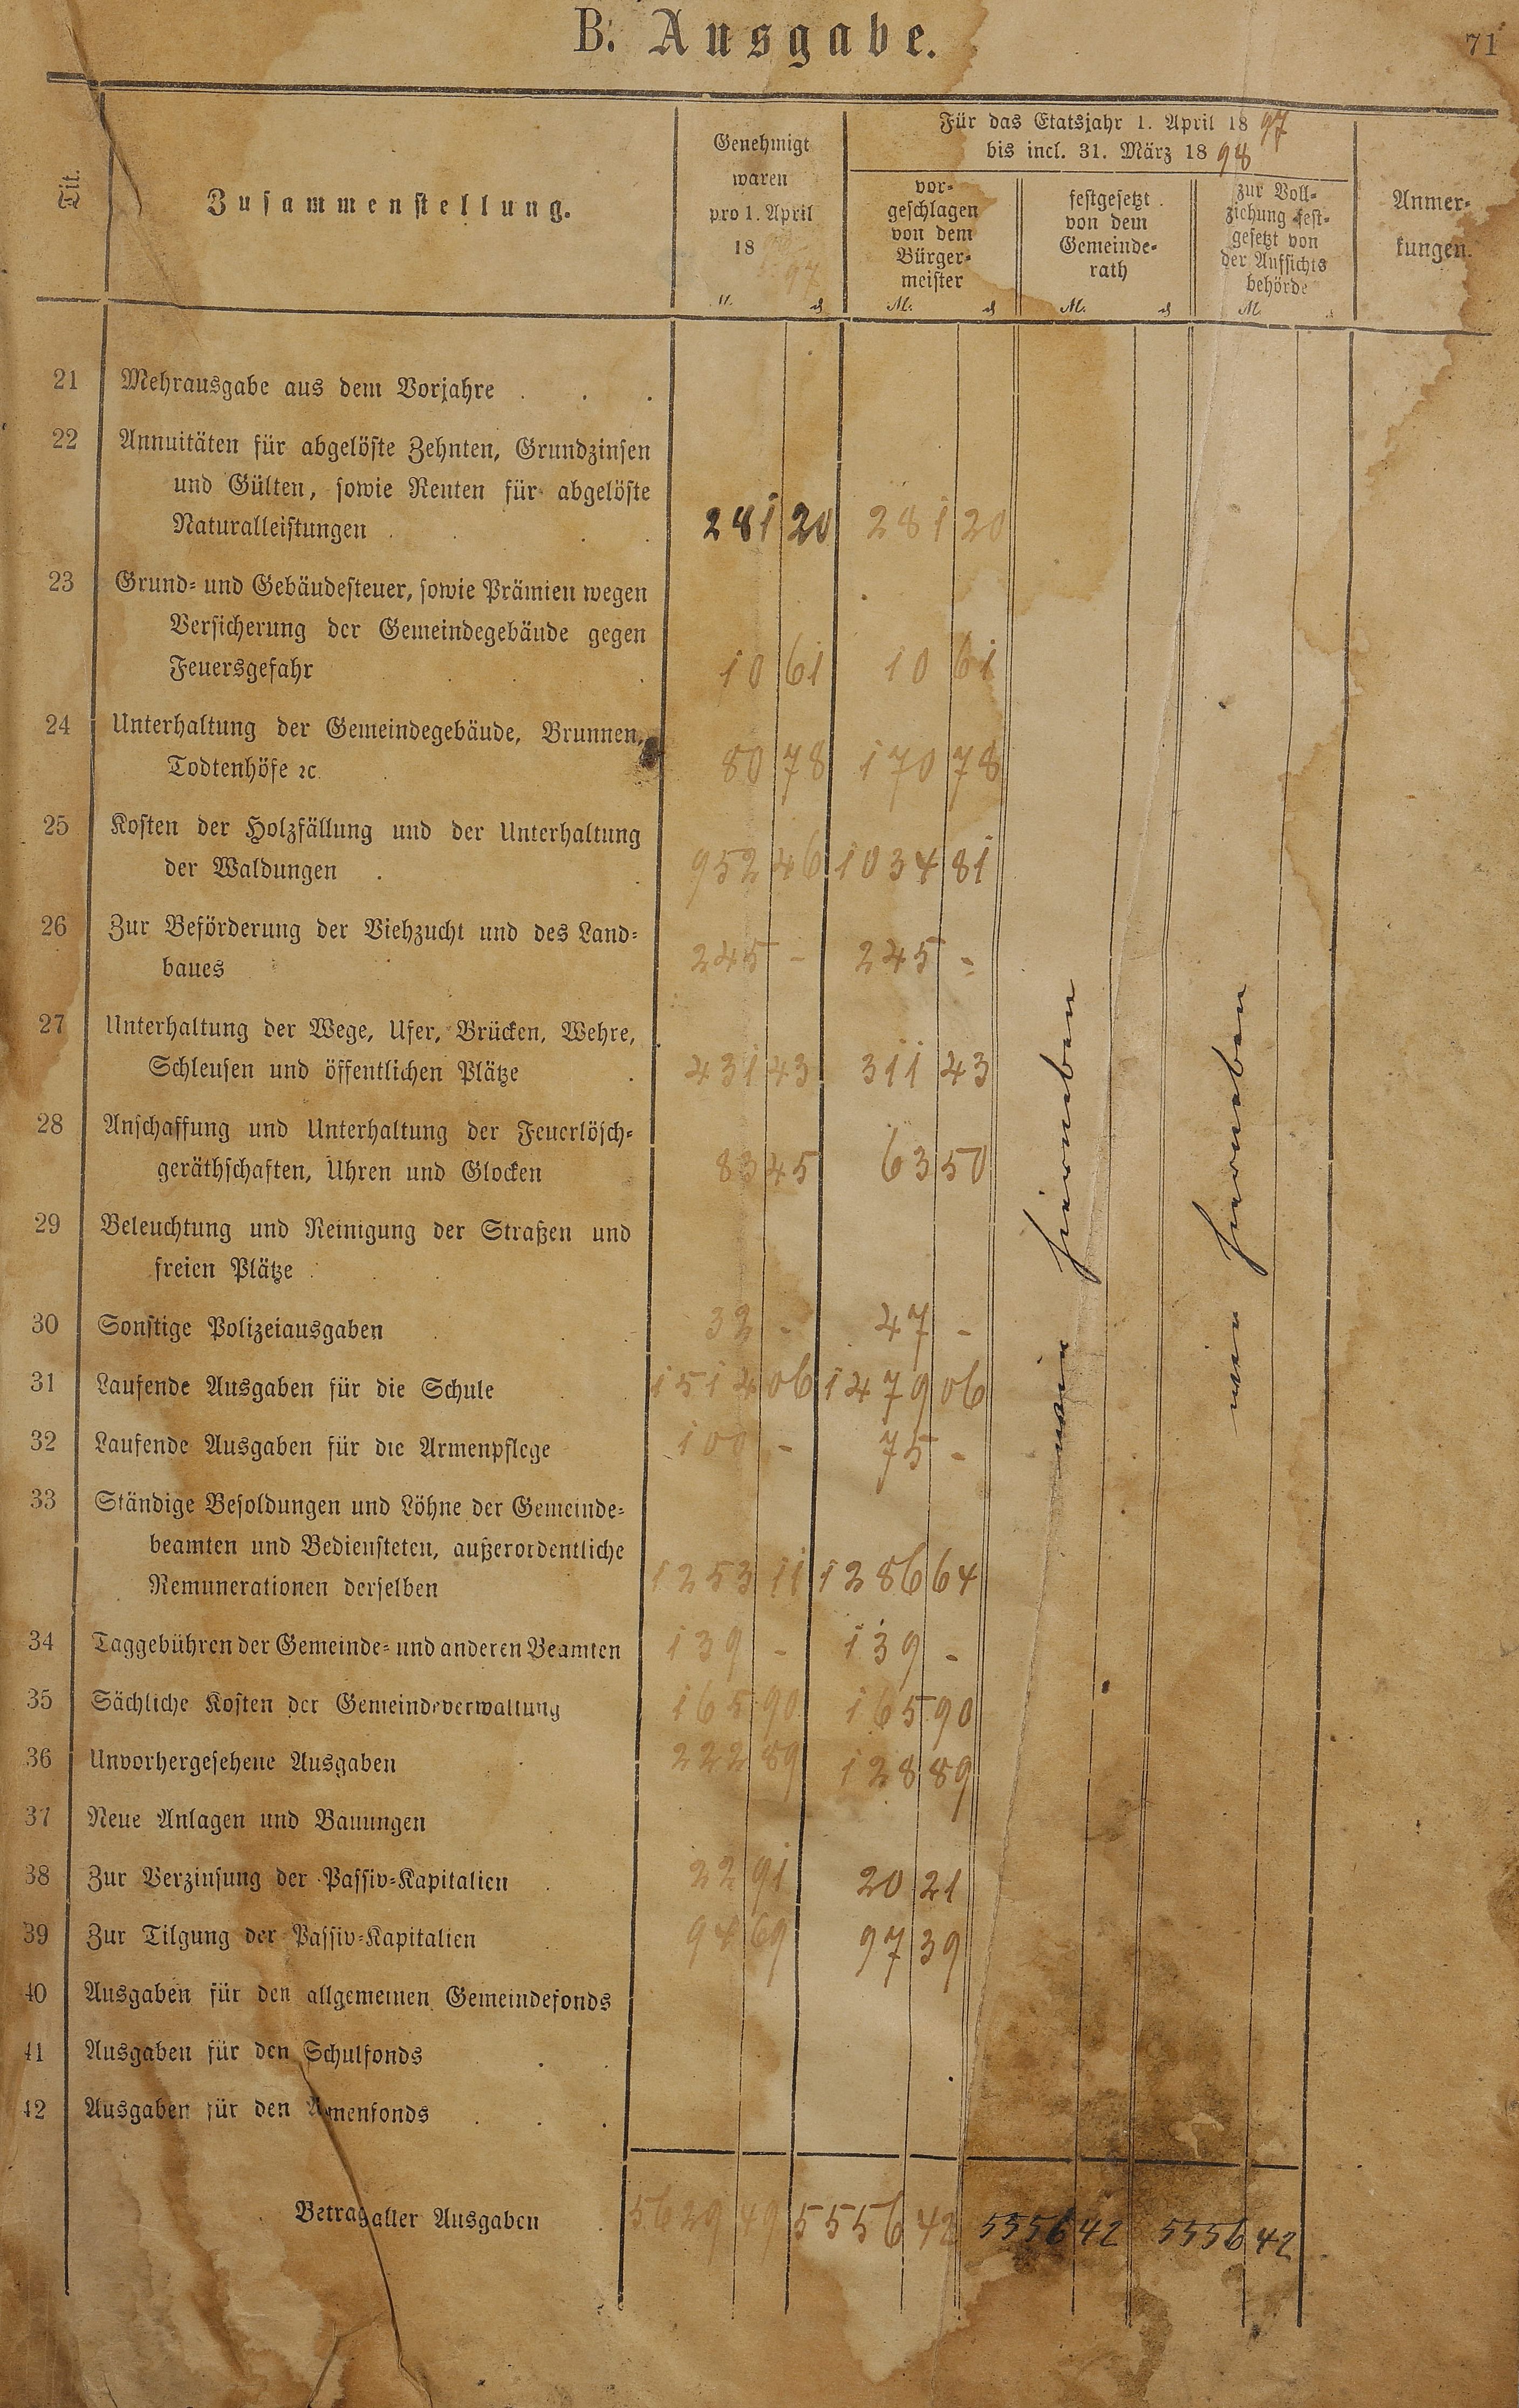 B. Ausgabe.
71
Tit.
Zusammenstellung.
Genehmigt
waren
pro 1. April
18 97
Für das Etatsjahr 1. April 18 97
bis incl. 31. März 18 98
vor-
geschlagen
von dem
Bürger-
meister
festgesetzt
von dem
Gemeinde-
rath
zur Voll-
ziehung fest-
gesetzt von
der Aufsichts
behörde
Anmer-
kungen.
M. ₰ M. ₰ M. ₰ M.
21 Mehrausgabe aus dem Vorjahre . . .
22 Annuitäten für abgelöste Zehnten, Grundzinsen
und Gülten, sowie Renten für abgelöste
Naturalleistungen . 281 20 281 20
23 Grund- und Gebäudesteuer, sowie Prämien wegen
Versicherung der Gemeindegebäude gegen
Feuersgefahr 10 61 10 61
24 Unterhaltung der Gemeindegebäude, Brunnen,
Todtenhöfe ꝛc. 80 78 170 78
25 Kosten der Holzfällung und der Unterhaltung
der Waldungen . 952 46 1034 81
26 Zur Beförderung der Viehzucht und des Land-
baues 245 - 245 -
27 Unterhaltung der Wege, Ufer, Brücken, Wehre,
Schleusen und öffentlichen Plätze 431 43 311 43
28 Anschaffung und Unterhaltung der Feuerlösch-
geräthschaften, Uhren und Glocken 83 45 63 50
29 Beleuchtung und Reinigung der Straßen und
freien Plätze
30 Sonstige Polizeiausgaben 32 - 47 -
31 Laufende Ausgaben für die Schule 1514 06 1479 06
32 Laufende Ausgaben für die Armenpflege 100 - 75 -
33 Ständige Besoldungen und Löhne der Gemeinde-
beamten und Bediensteten, außerordentliche
Remunerationen derselben 1253 11 1286 64
34 Taggebühren der Gemeinde- und anderen Beamten 139 - 139 -
35 Sächliche Kosten der Gemeindeverwaltung 165 90 165 90
36 Unvorhergesehene Ausgaben 222 89 128 89
37 Neue Anlagen und Bauungen
38 Zur Verzinsung der Passiv-Kapitalien 22 91 20 21
39 Zur Tilgung der Passiv-Kapitalien 94 69 97 39
40 Ausgaben für den allgemeinen Gemeindefonds
41 Ausgaben für den Schulfonds
42 Ausgaben für den Armenfonds . . .
wie hierneben
wie hierneben
Betrag aller Ausgaben 5629 49 5556 42 5556 42 5556 42